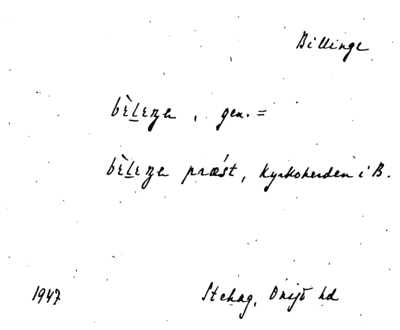 Billinge
bèleŋa, gen. =
bèleŋa præ̀st, kyrkoherden i B.
1947 Stehag, Onsjö hd